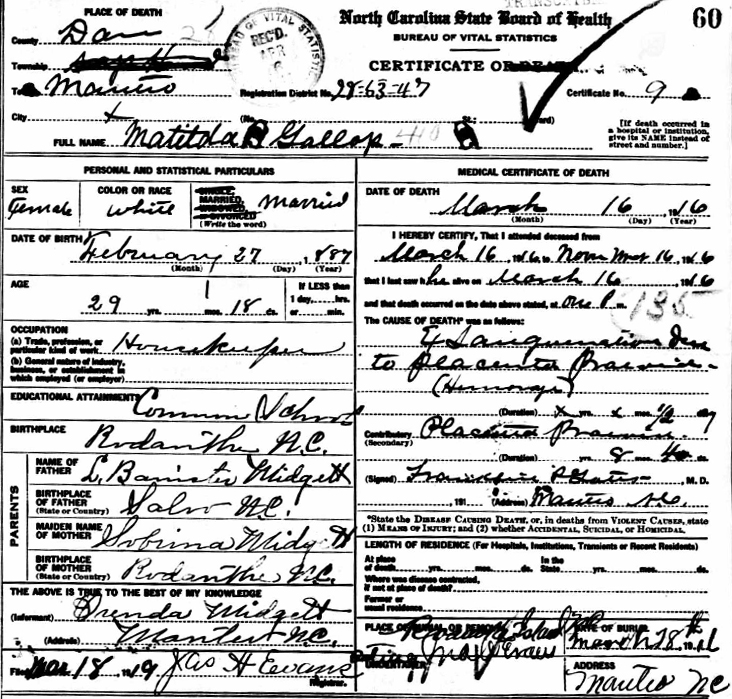 PLACE OF DEATH
County Dare
Township
Town Manteo
City
North Carolina State Board of Health
BUREAU OF VITAL STATISTICS
CERTIFICATE OF DEATH
60
BUREAU OF VITAL STATISTICS
REC'D.
APR
Registration District No. 28-63-47
Certificate No. 9
(No. St.; Ward)
[If death occurred in
a hospital or institution,
give its NAME instead of
street and number.]
FULL NAME Matilda Gallop
PERSONAL AND STATISTICAL PARTICULARS
SEX
Female
COLOR OR RACE
White
SINGLE,
MARRIED,
WIDOWED,
OR DIVORCED
(Write the word)
Married
DATE OF BIRTH
February 27, 1887
(Month) (Day) (Year)
AGE
29 yrs. mos. 18 ds.
If LESS than
1 day,....hrs.
or......min.
OCCUPATION
(a) Trade, profession, or
particular kind of work
Housekeeper
(b) General nature of industry,
business, or establishment in
which employed (or employer)
EDUCATIONAL ATTAINMENTS Common School
BIRTHPLACE
Rodanthe N.C.
PARENTS
NAME OF
FATHER
L. Banister Midgett
BIRTHPLACE
OF FATHER
(State or Country)
Salvo N.C.
MAIDEN NAME
OF MOTHER
Sobrina Midgett
BIRTHPLACE
OF MOTHER
(State or Country)
Rodanthe N.C.
THE ABOVE IS TRUE TO THE BEST OF MY KNOWLEDGE
(Informant) Midgett
(Address) Manteo N.C.
Filed Mar 18, 19 Jas H Evans
Registrar.
MEDICAL CERTIFICATE OF DEATH
DATE OF DEATH
March 16, 1916
(Month) (Day) (Year)
I HEREBY CERTIFY, That I attended deceased from
March 16, 1916, to 16, 1916
that I last saw h alive on March 16, 1916
and that death occurred on the date above stated, at One P. m.
135
The CAUSE OF DEATH* was as follows:
Exsanguination Due
to Placenta Praevia
(Hemorage)
(Duration) x yrs. x mos. 1/2
Contributory Placenta Praevia
(Secondary)
(Duration) yrs. 8 mos. ds.
(Signed) M.D.
, 191 (Address) Manteo N.C.
*State the DISEASE CAUSING DEATH, or, in deaths from VIOLENT CAUSES, state
(1) MEANS OF INJURY; and (2) whether ACCIDENTAL, SUICIDAL, or HOMICIDAL.
LENGTH OF RESIDENCE (For Hospitals, Institutions, Transients or Recent Residents)
At place
of death yrs. mos. ds.
In the
State yrs. mos. ds.
Where was disease contracted,
if not at place of death?
Former or
usual residence
PLACE OF BURIAL OR REMOVAL
Roanoke Island
DATE OF BURIAL
March 28th 1916
UNDERTAKER
Evans
ADDRESS
Manteo NC